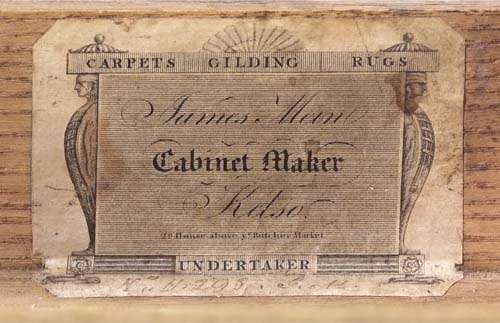 CARPETS GILDING RUGS
James Mein
Cabinet Maker
Kelso.
2d House above ye Butcher Market
UNDERTAKER